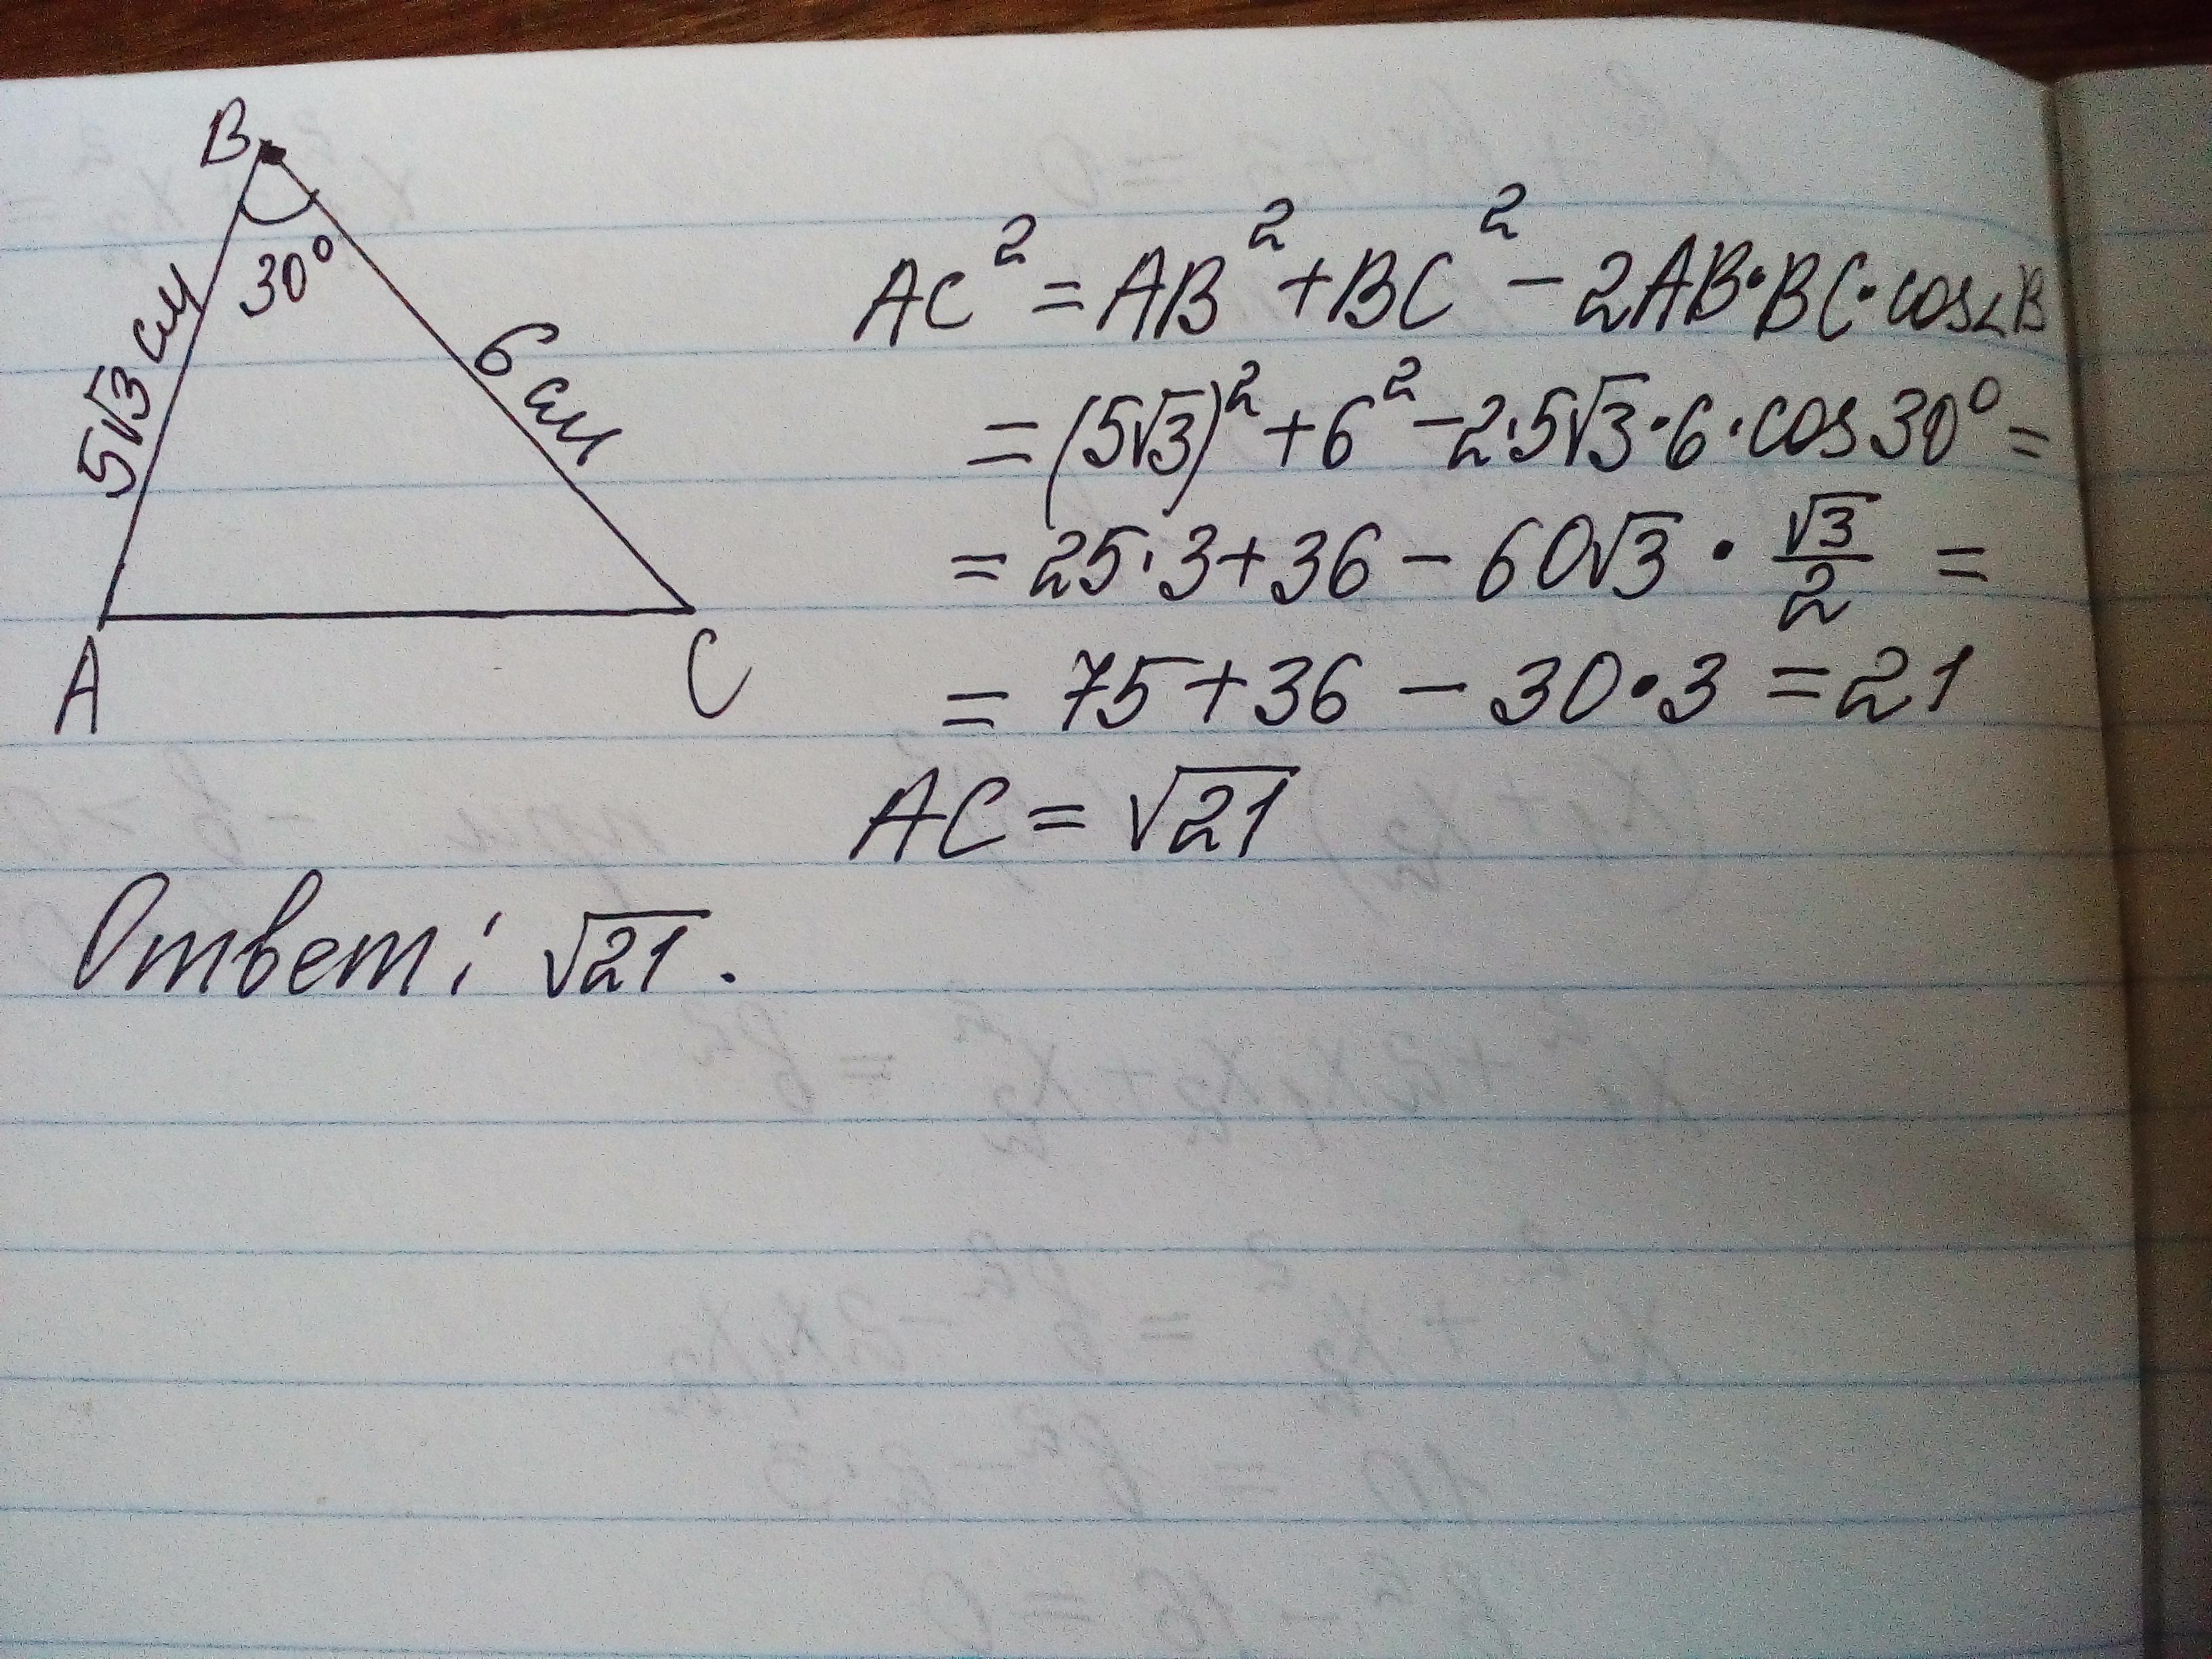 B
30°
5√3 см
6 см
A
C
AC² = AB² + BC² − 2AB·BC·cos∠B
= (5√3)² + 6² − 2·5√3·6·cos 30° =
= 25·3 + 36 − 60√3 · √3/2 =
= 75 + 36 − 30·3 = 21
AC = √21
Ответ: √21.